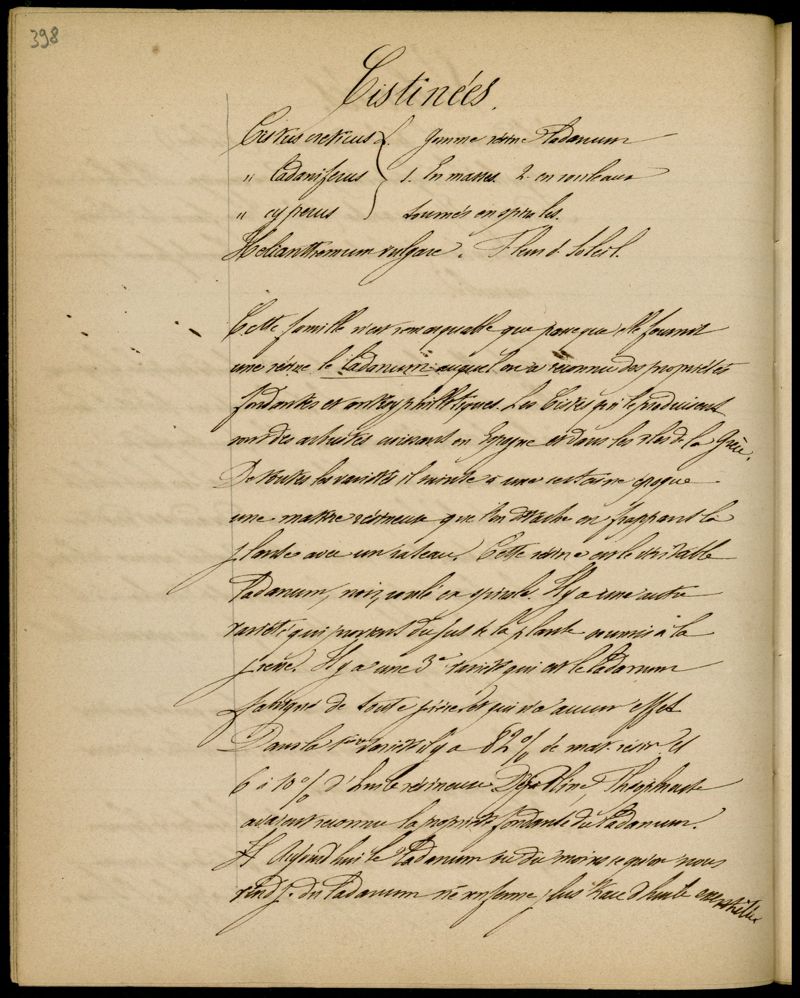 398
Cistinées.
Cistus creticus L. Gomme résine Ladanum
" Ladaniferus 1. En masses. 2. en rouleaux
" cyprus tournés en spirales.
Helianthemum vulgare. Fleur d. Soleil.
Cette famille n'est remarquable que parce que elle fournit
une résine le Ladanum auquel on a reconnu des propriétés
fondantes et antisyphilitiques. Les Cistes qui le produisent
sont des arbustes croissant en Espagne et dans les iles de la Grèce.
De toutes les variétés il suinte à une certaine époque
une matière résineuse que l'on détache en frappant la
plante avec un rateau. Cette résine est le véritable
Ladanum, noir, roulé en spirale. Il y a une autre
variété qui provient du jus de la plante soumis à la
presse. Il y a une 3e variété qui est le Ladanum
fabriqué de toute pièce et qui n'a aucun effet
Dans la 1re variété il y a 82% de mat. résin. et
6 à 10% d'huile résineuse Déjà Pline, Théophraste
avaient reconnu la propriété fondante du Ladanum.
Aujourd'hui le Ladanum ou du moins ce qu'on nous
vend p. du Ladanum ne renferme plus trace d'huile